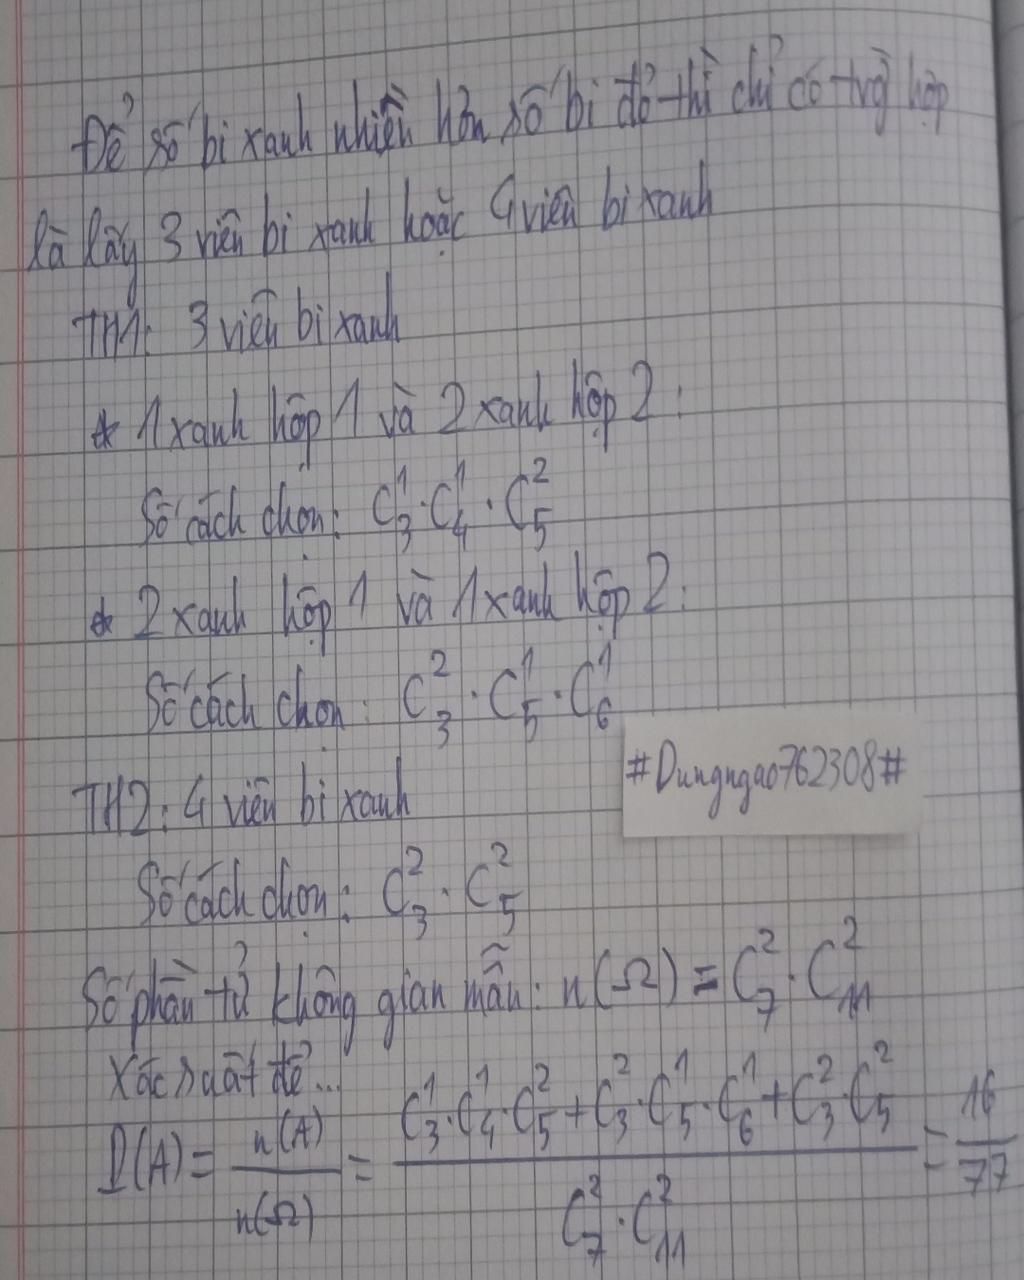 Để số bi xanh nhiều hơn số bi đỏ thì chỉ có trg hợp
là lấy 3 viên bi xanh hoặc 4 viên bi xanh
TH1: 3 viên bi xanh
* 1 xanh hộp 1 và 2 xanh hộp 2:
Số cách chọn: C₃¹ · C₄¹ · C₅²
* 2 xanh hộp 1 và 1 xanh hộp 2:
Số cách chọn: C₃² · C₅¹ · C₆¹
#Dungngao762308#
TH2: 4 viên bi xanh
Số cách chọn: C₃² · C₅²
Số phần tử không gian mẫu: n(Ω) = C₇² · C₁₁²
Xác suất để...
P(A) = n(A)/n(Ω) = (C₃¹ · C₄¹ · C₅² + C₃² · C₅¹ · C₆¹ + C₃² · C₅²)/(C₇² · C₁₁²) = 16/77